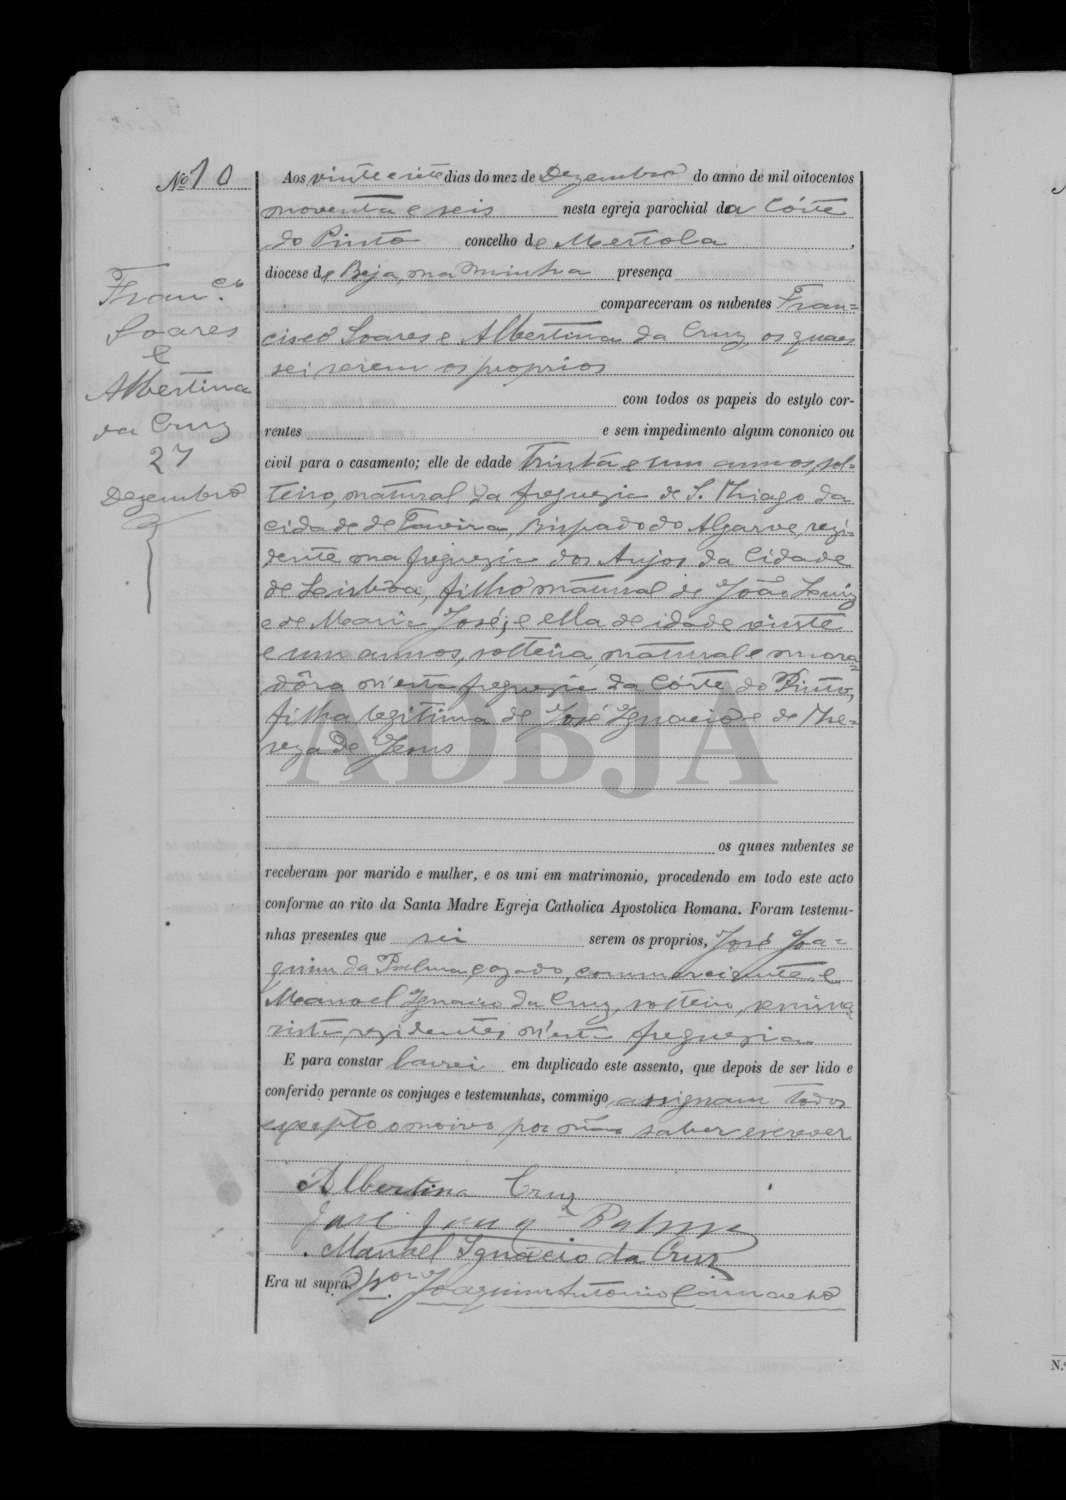 Nº 10
Aos vinte e sete dias do mez de Dezembro do anno de mil oitocentos
noventa e seis nesta egreja parochial da Córte
do Pinto concelho de Mertola
diocese de Beja, na minha presença
compareceram os nubentes Fran=
cisco Soares e Albertina da Cruz, os quaes
sei serem os proprios
com todos os papeis do estylo cor-
rentes e sem impedimento algum cononico ou
civil para o casamento; elle de edade trinta e um annos, sol=
teiro, natural da freguezia de S. Thiago da
cidade de Tavira, Bispado do Algarve, rezi=
dente na freguezia dos Anjos da Cidade
de Lisbôa, filho natural de João Luiz
e de Maria José; e ella de idade vinte
e um annos, solteira, natural e mora=
dôra n'esta freguezia da Córte do Pinto,
filha legitima de José Ignacio e de The=
reza de Jesus
os quaes nubentes se
receberam por marido e mulher, e os uni em matrimonio, procedendo em todo este acto
conforme ao rito da Santa Madre Egreja Catholica Apostolica Romana. Foram testemu-
nhas presentes que sei serem os proprios, José Joa=
quim da Palma, cazado, commerciante, e
Manoel Ignacio da Cruz, solteiro,
rezidentes n'esta freguezia
E para constar lavrei em duplicado este assento, que depois de ser lido e
conferido perante os conjuges e testemunhas, commigo assignam todos
excepto o noivo por não saber escrever
Albertina Cruz
José Joaqm Palma
Manoel Ignácio da Cruz
Era ut supra. O Por Joaquim Antonio
Fran.co
Soares
e
Albertina
da Cruz
27
Dezembro
ADBJA
N.º